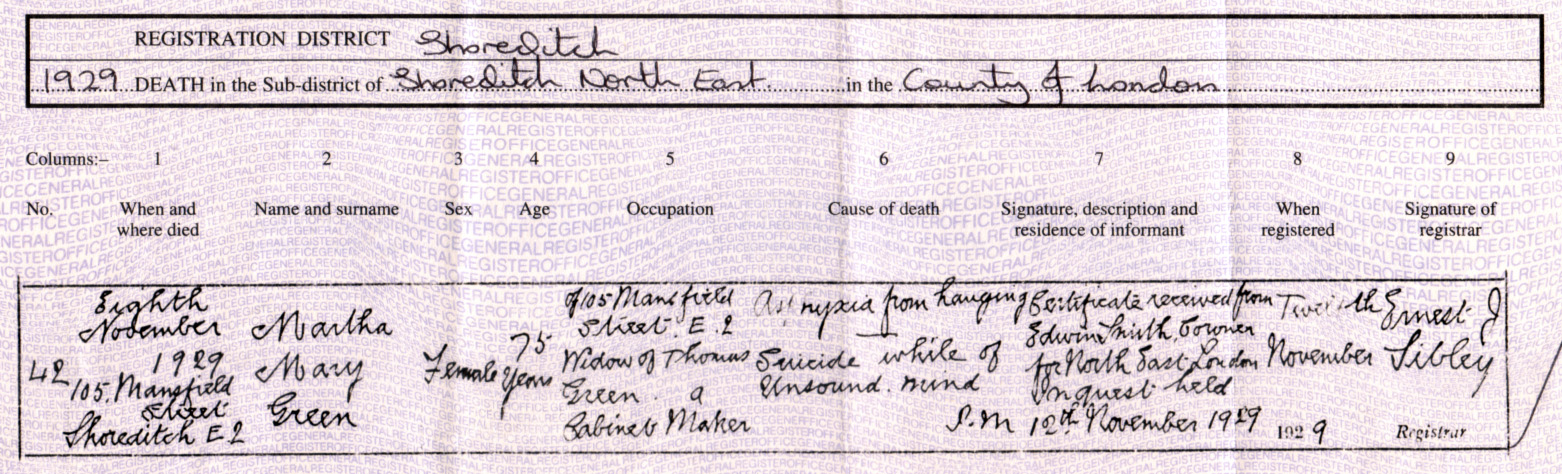 REGISTRATION DISTRICT Shoreditch
1929 DEATH in the Sub-district of Shoreditch North East in the County of London
Columns:– 1 2 3 4 5 6 7 8 9
No. When and where died Name and surname Sex Age Occupation Cause of death Signature, description and residence of informant When registered Signature of registrar
42
Eighth
November
1929
105. Mansfield
Street
Shoreditch E2
Martha
Mary
Green
Female
75
Years
of 105 Mansfield
Street E.2
Widow of Thomas
Green a
Cabinet Maker
from hanging
Suicide while of
Unsound mind
P.M
Certificate received from
Edwin Smith, Coroner
for North East London
Inquest held
12th November 1929
Twelfth
November
1929
Ernest J
Sibley
Registrar